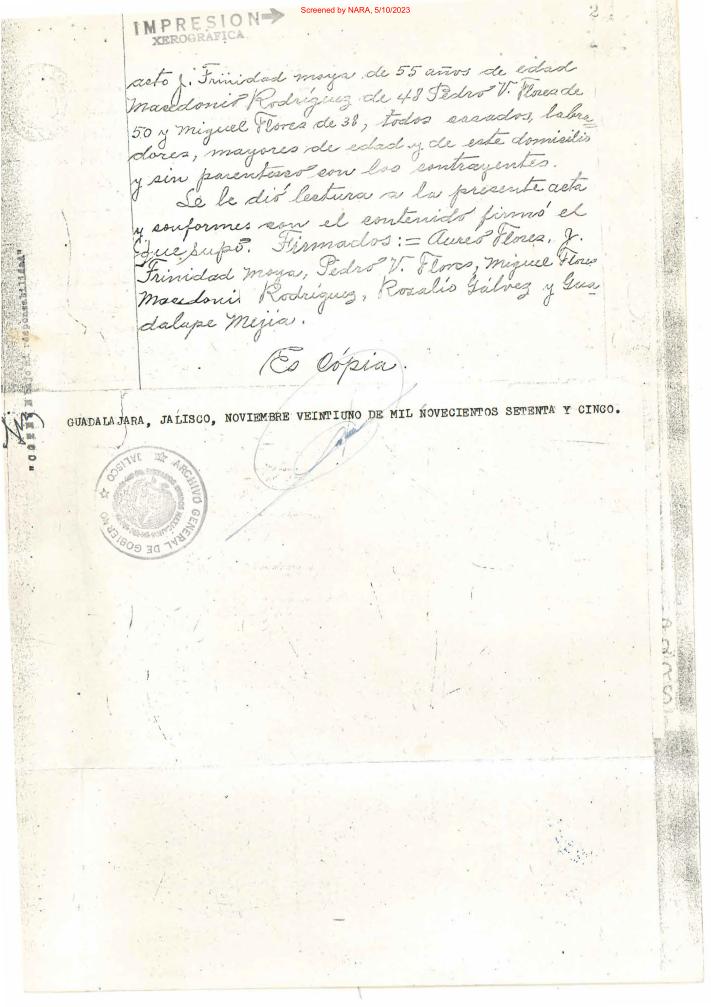 Screened by NARA, 5/10/2023
IMPRESION
XEROGRAFICA
2
acto J. Trinidad Moya de 55 años de edad
Macedonio Rodríguez de 48 Pedro V. Flores de
50 y Miguel Flores de 38, todos casados, labra=
dores, mayores de edad y de este domicilio
y sin parentesco con los contrayentes.
Se le dió lectura a la presente acta
y conformes con el contenido firmó el
que supo. Firmados:= Aureo Flores, J.
Trinidad Moya, Pedro V. Flores, Miguel Flores
Macedonio Rodríguez, Rosalío Gálvez y Gua=
dalupe Mejía.
Es Cópia.
GUADALAJARA, JALISCO, NOVIEMBRE VEINTIUNO DE MIL NOVECIENTOS SETENTA Y CINCO.
ARCHIVO GENERAL DE GOBIERNO
JALISCO
ESTADOS UNIDOS MEXICANOS